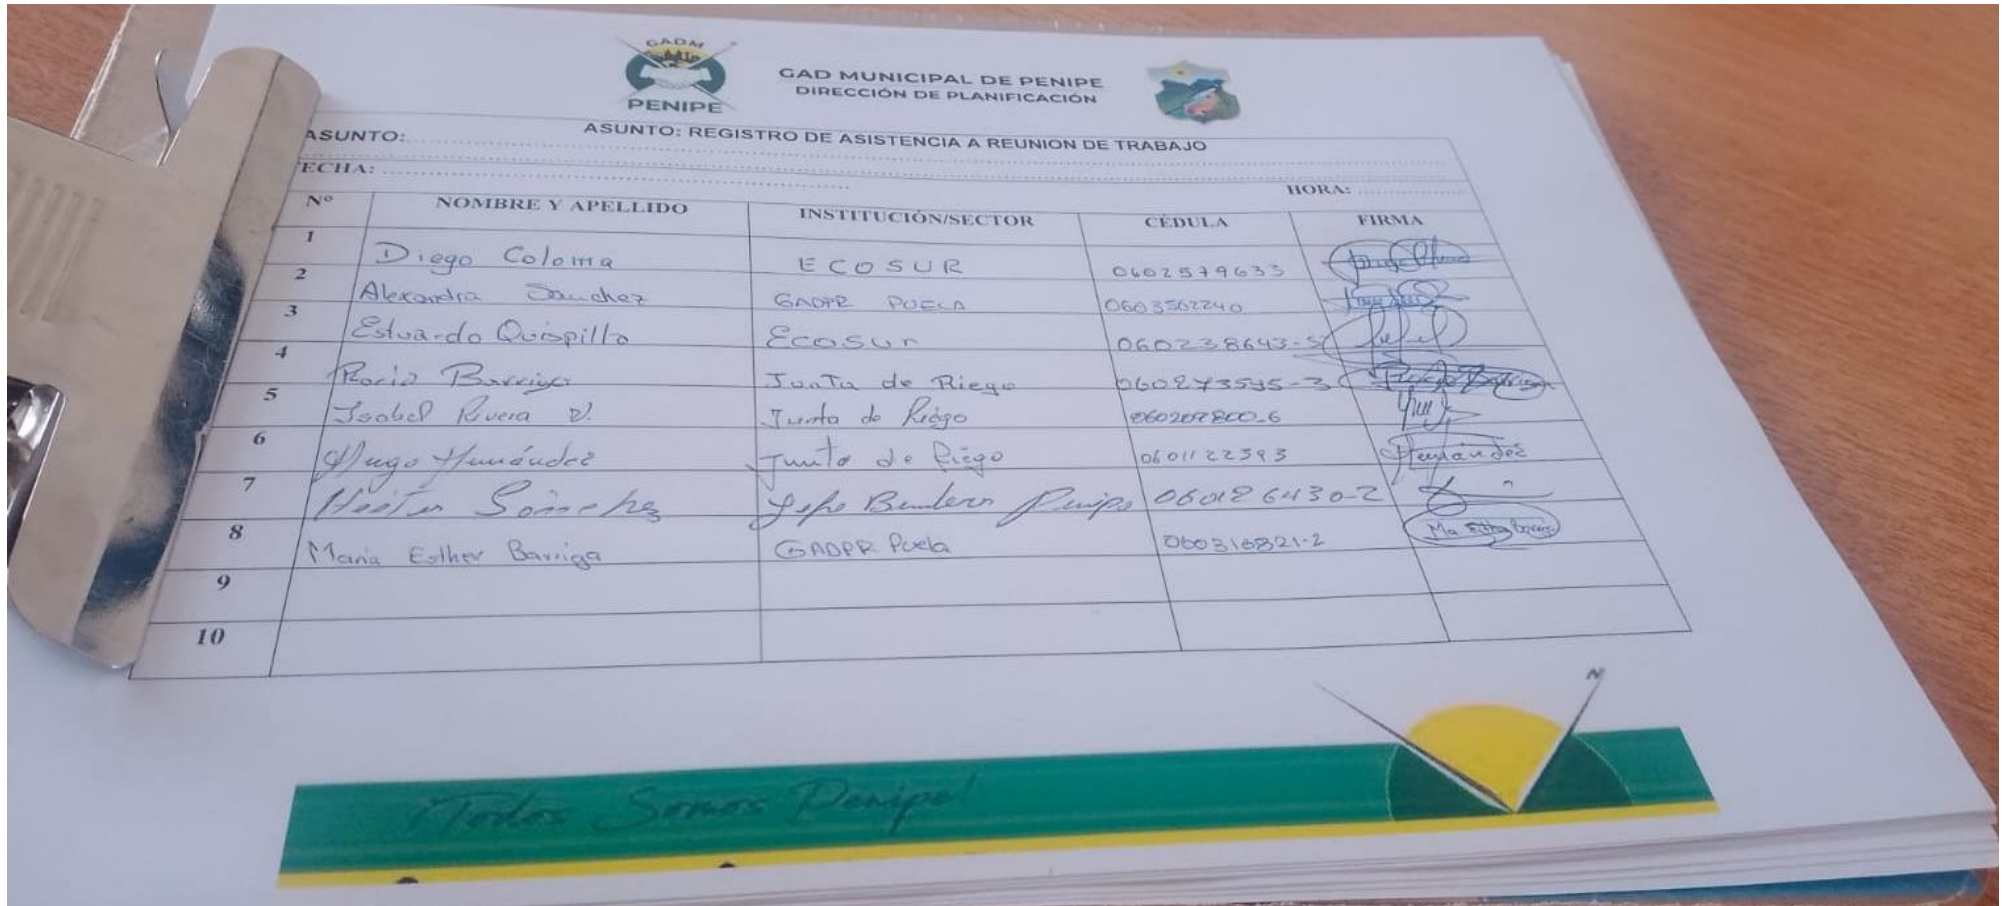 GADM
PENIPE
GAD MUNICIPAL DE PENIPE
DIRECCIÓN DE PLANIFICACIÓN
ASUNTO: ASUNTO: REGISTRO DE ASISTENCIA A REUNION DE TRABAJO
FECHA: HORA:
Nº NOMBRE Y APELLIDO INSTITUCIÓN/SECTOR CÉDULA FIRMA
1 Diego Coloma ECOSUR 0602579633
2 Alexandra Sánchez GADPR PUELA 0603502240
3 Estuardo Quispillo Ecosur 060238643-5
4 Rocio Barriga Junta de Riego 060273545-3
5 Isabel Rivera V. Junta de Riego
6 Hugo Hernández Junta de Riego 0601122593 Hernández
7 Héctor Sánchez Jefe Bombero Penipe 060126430-2
8 Maria Esther Barriga GADPR Puela 060316821-2
9
10
N
¡Todos Somos Penipe!